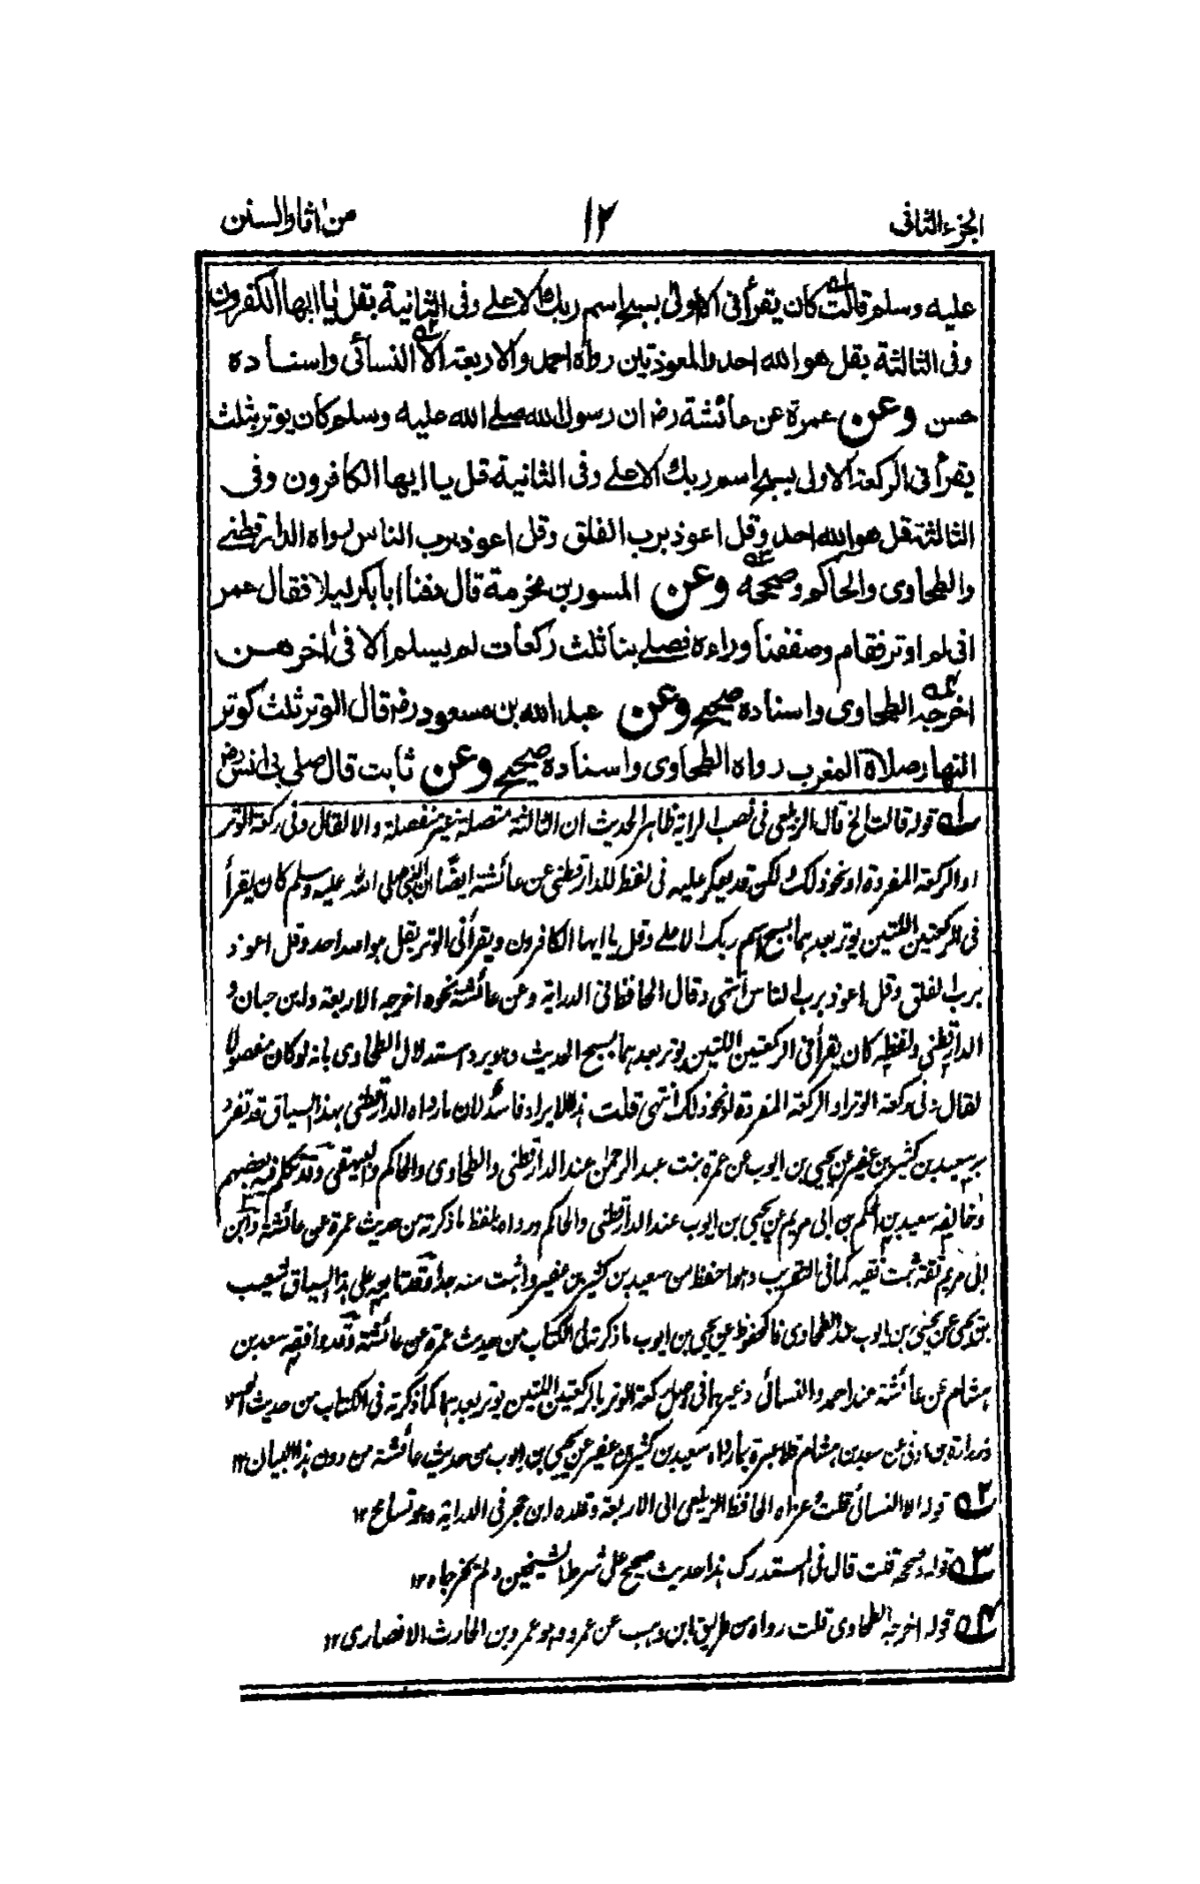 الجزء الثاني
١٢
من اثار السنن
عليه وسلم قالت كان يقرأ فى الاولى بسبح اسم ربك الاعلى وفى الثانية بقل يا ايها الكفرون
وفى الثالثة بقل هو الله احد والمعوذتين رواه احمد والاربعة الا النسائى واسناده
حسن وعن عمرة عن عائشة رض ان رسول الله صلى الله عليه وسلم كان يوتر بثلث
يقرأ فى الركعة الاولى بسبح اسم ربك الاعلى وفى الثانية قل يا ايها الكافرون وفى
الثالثة قل هو الله احد وقل اعوذ برب الفلق وقل اعوذ برب الناس رواه الدارقطنى
والطحاوى والحاكم وصححه وعن المسور بن مخرمة قال دفنا ابا بكر ليلا فقال عمر
انى لم اوتر فقام وصففنا وراءه فصلى بنا ثلث ركعات لم يسلم الا فى اخرهن
اخرجه الطحاوى واسناده صحيح وعن عبد الله بن مسعود رض قال الوتر ثلث كوتر
النهار صلاة المغرب رواه الطحاوى واسناده صحيح وعن ثابت قال صلى بى انس رض
١ه قوله قالت الخ قال الزيلعى فى نصب الراية ظاهر الحديث ان الثالثة متصلة غير منفصلة والا لقال وفى ركعة الوتر
او الركعة المفردة او نحو ذلك لكن قد يعكر عليه فى لفظ للدارقطنى عن عائشة ايضًا ان النبى صلى الله عليه وسلم كان يقرأ
فى الركعتين اللتين يوتر بعدهما بسبح اسم ربك الاعلى وقل يا ايها الكافرون ويقرأ فى الوتر بقل هو الله احد وقل اعوذ
برب الفلق وقل اعوذ برب الناس انتهى وقال الحافظ فى الدراية وعن عائشة نحوه اخرجه الاربعة وابن حبان و
الدارقطنى ولفظه كان يقرأ فى الركعتين اللتين يوتر بعدهما بسبح الحديث وهو يرد استدلال الطحاوى بانه لو كان مفصولا
لقال وفى ركعة الوتر او الركعة المفردة او نحو ذلك انتهى قلت هذا الايراد فاسد لان ما رواه الدارقطنى بهذا السياق قد تفرد
به سعيد بن كثير بن عفير عن يحيى بن ايوب عن عمرة بنت عبد الرحمن عند الدارقطنى والطحاوى والحاكم والبيهقى وقد تكلم فيه بعضهم
وخالفه سعيد بن الحكم بن ابى مريم عن يحيى بن ايوب عند الدارقطنى والحاكم ورواه بلفظ ما ذكرته من حديث عمرة عن عائشة وابن
ابى مريم ثقة ثبت فقيه كما فى التقريب وهو احفظ من سعيد بن كثير بن عفير واثبت منه جدا وقد تابعه على هذا السياق شعيب
بن يحيى عن يحيى بن ايوب عند الطحاوى فالمحفوظ عن يحيى بن ايوب ما ذكرته فى الكتاب من حديث عمرة عن عائشة وقد وافقه سعد بن
هشام عن عائشة عند احمد والنسائى وغيرهما فى وصل ركعة الوتر بالركعتين اللتين يوتر بعدهما كما ذكرته فى الكتاب من حديث
زرارة بن اوفى عن سعد بن هشام فلا عبرة بما رواه سعيد بن كثير بن عفير عن يحيى بن ايوب من حديث عائشة من دون هذا البيان ١٢
٢ه قوله الا النسائى قلت وعزاه الحافظ الزيلعى الى الاربعة وقلده ابن حجر فى الدراية وهو تسامح ١٢
٣ه قوله وصححه قلت قال فى المستدرك هذا حديث صحيح على شرط الشيخين ولم يخرجاه ١٢
٤ه قوله اخرجه الطحاوى قلت رواه من طريق ابن وهب عن عمرو وهو عمرو بن الحارث الانصارى ١٢